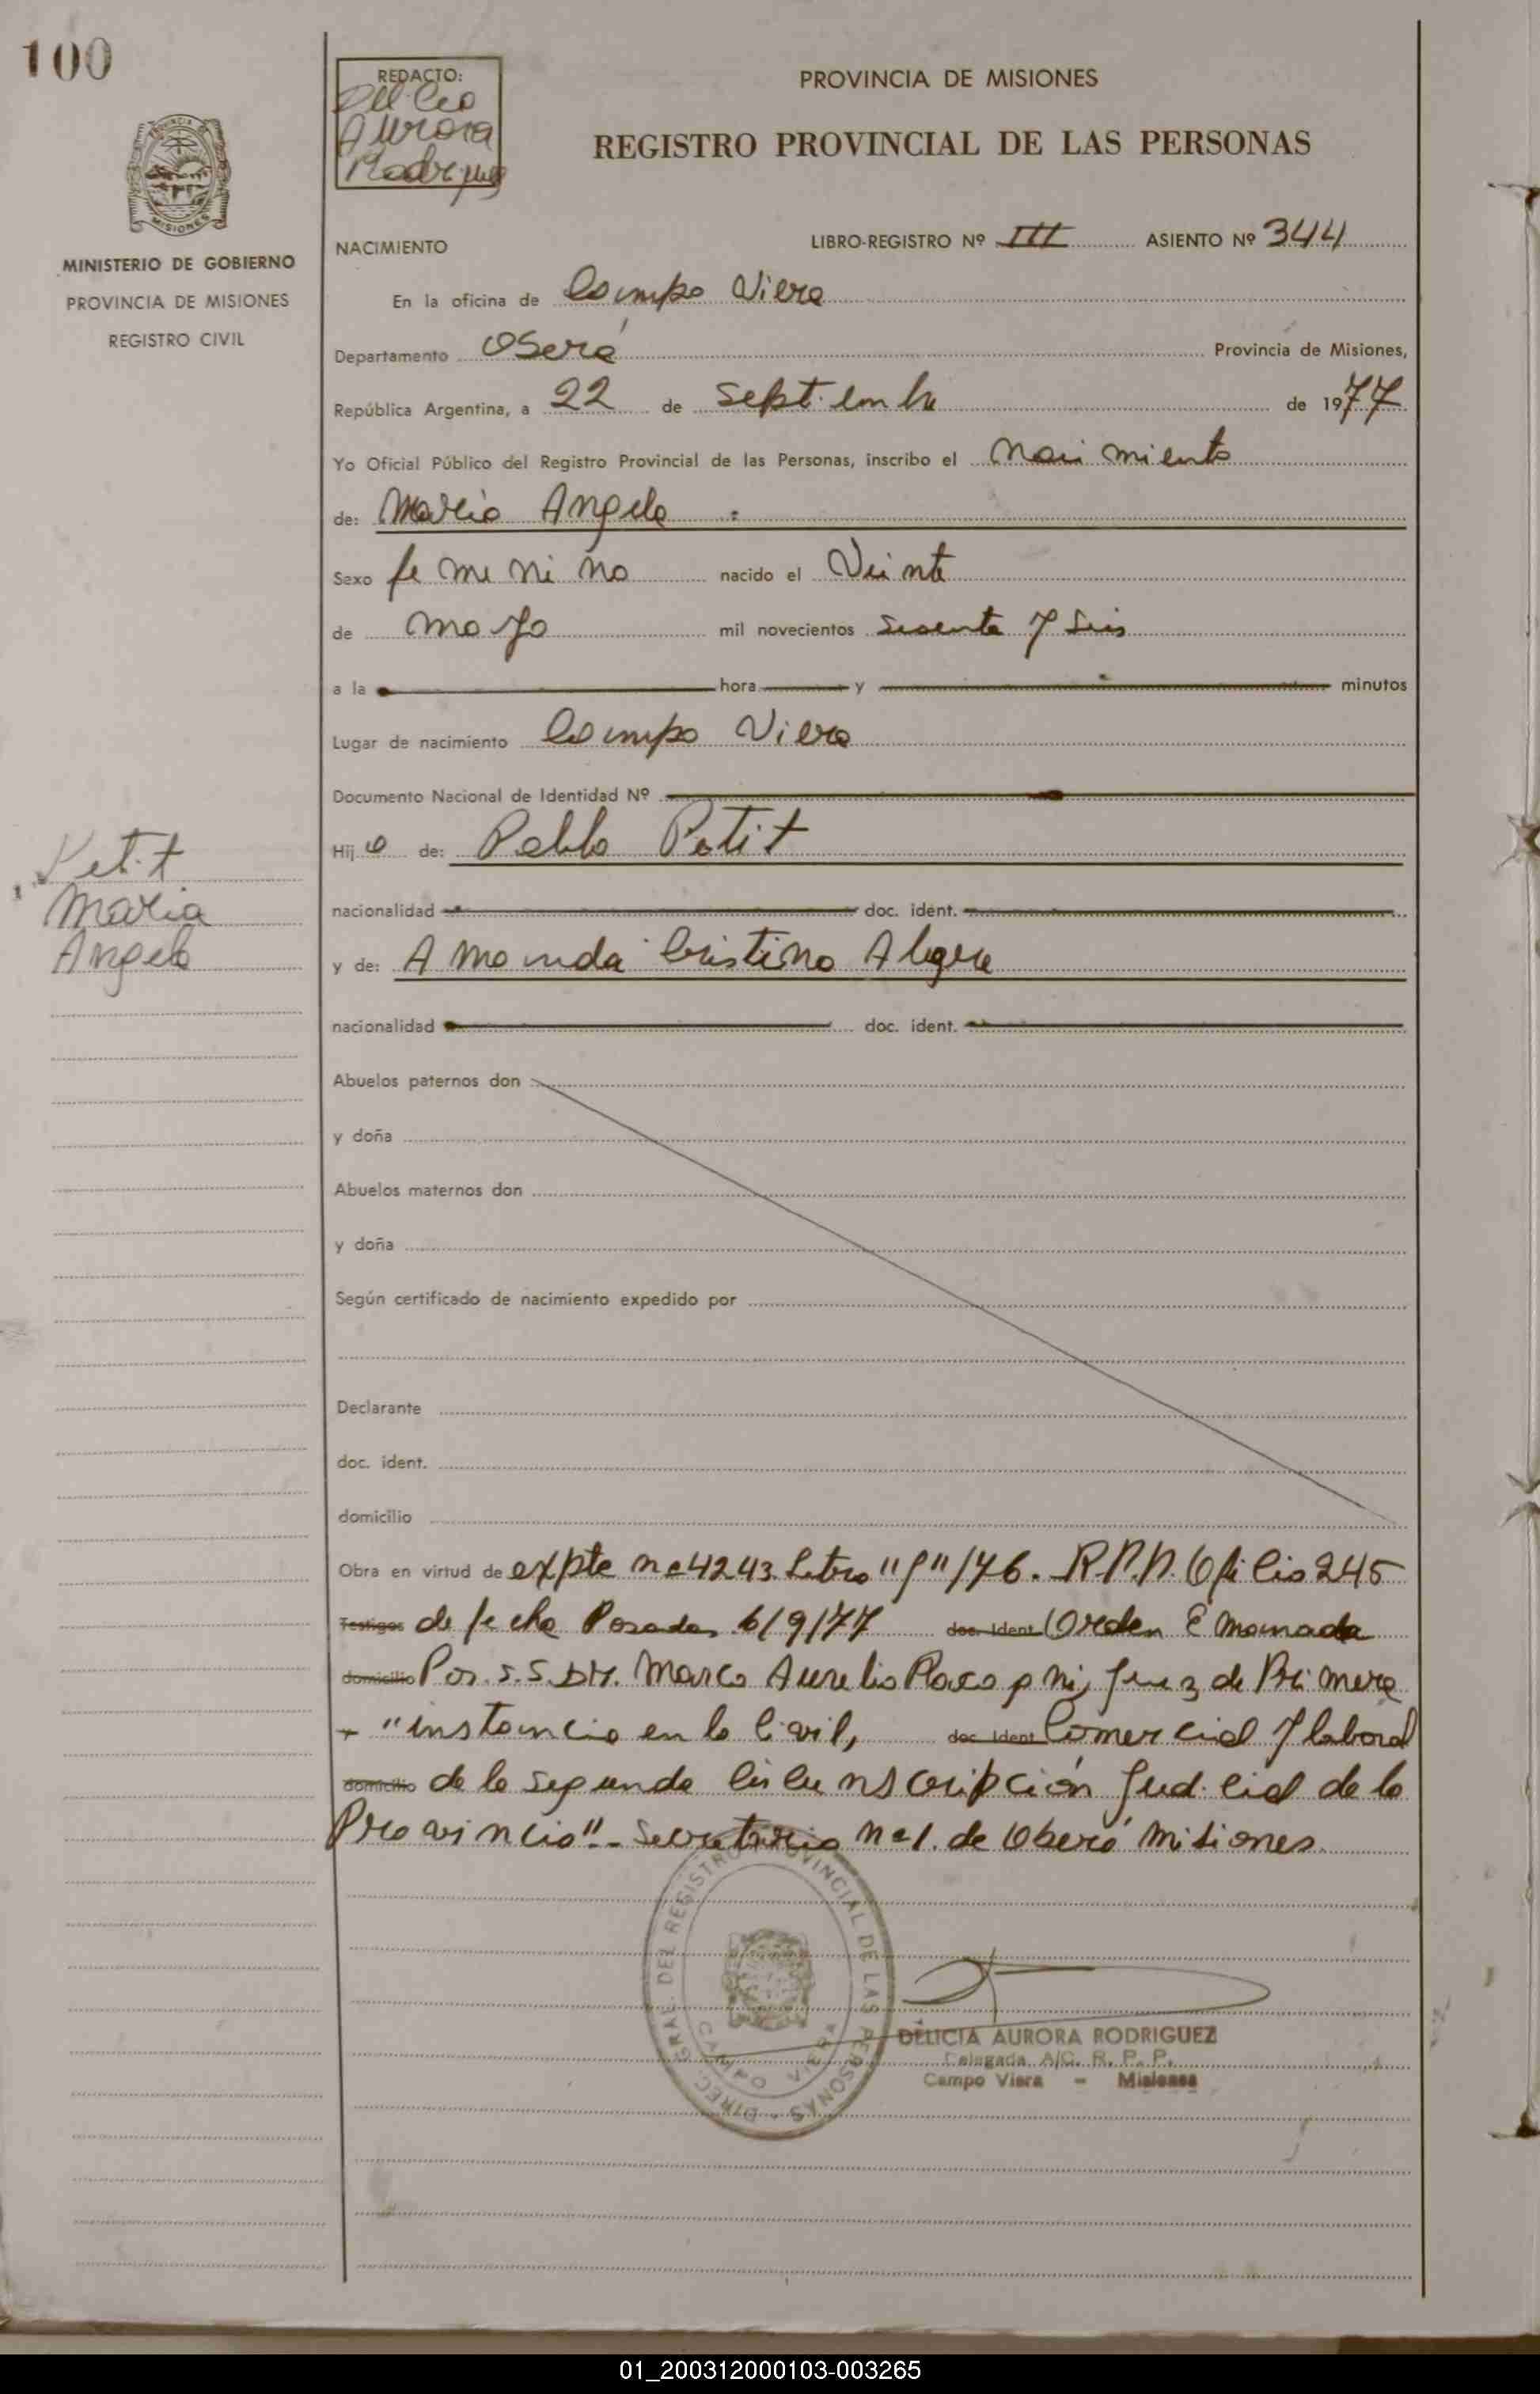 100
REDACTO:
Delicia
Aurora
Rodriguez
PROVINCIA DE MISIONES
REGISTRO PROVINCIAL DE LAS PERSONAS
PROVINCIA DE
MISIONES
MINISTERIO DE GOBIERNO
PROVINCIA DE MISIONES
REGISTRO CIVIL
NACIMIENTO
LIBRO-REGISTRO Nº III ASIENTO Nº 344
En la oficina de Campo Viera
Departamento Oberá Provincia de Misiones,
República Argentina, a 22 de Septiembre de 1977
Yo Oficial Público del Registro Provincial de las Personas, inscribo el Nacimiento
de: Maria Angela
Sexo femenino nacido el Veinte
de mayo mil novecientos sesenta y seis
a la hora y minutos
Lugar de nacimiento Campo Viera
Documento Nacional de Identidad Nº
Hija de: Pablo Petit
Petit
Maria
Angela
nacionalidad doc. ident.
y de: Amanda Cristina Alegre
nacionalidad doc. ident.
Abuelos paternos don
y doña
Abuelos maternos don
y doña
Según certificado de nacimiento expedido por
Declarante
doc. ident.
domicilio
Obra en virtud de expte nº 4243 Letra "P"/76. R.P.P. Oficio 245
Testigos de fecha Posadas 6/9/77 doc. ident. Orden Emanada
domicilio Por. S.S. DR. Marco Aurelio Juez de Primera
"instancia en lo Civil, doc. ident. Comercial y laboral
domicilio de la segunda Circunscripción Judicial de la
Provincia"- Secretaria nº1. de Oberá Misiones.
DIREC. GRAL. DEL REGISTRO PROVINCIAL DE LAS PERSONAS
CAMPO VIERA
DELICIA AURORA RODRIGUEZ
Delegada A/C. R. P. P.
Campo Viera - Misiones
01_200312000103-003265